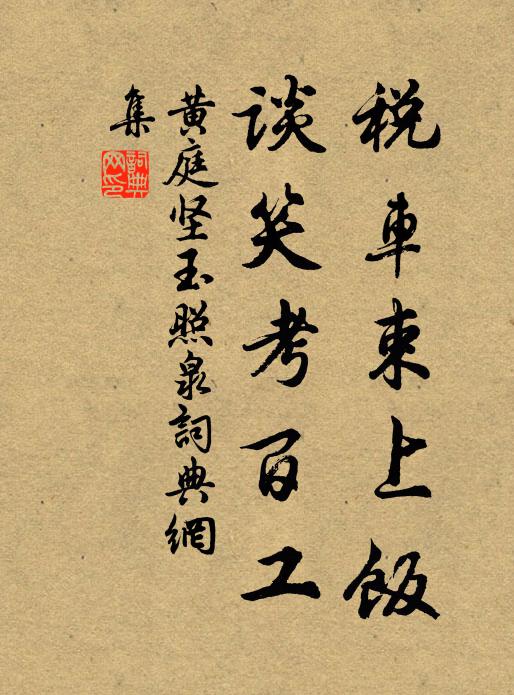 税車東上飯
談笑考百工
黄庭坚玉照泉詞典網
集
詞典网印